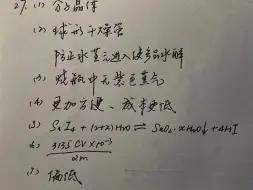 27. (1) 分子晶体
(2) 球形干燥管
防止水蒸气进入使产品水解
(3) 烧瓶中无紫色蒸气
(4) 更加方便、成本更低
(5) SnI4 + (2+x)H2O ⇌ SnO2·xH2O↓ + 4HI
(6) 313.5CV×10⁻³ / am
(7) 偏低